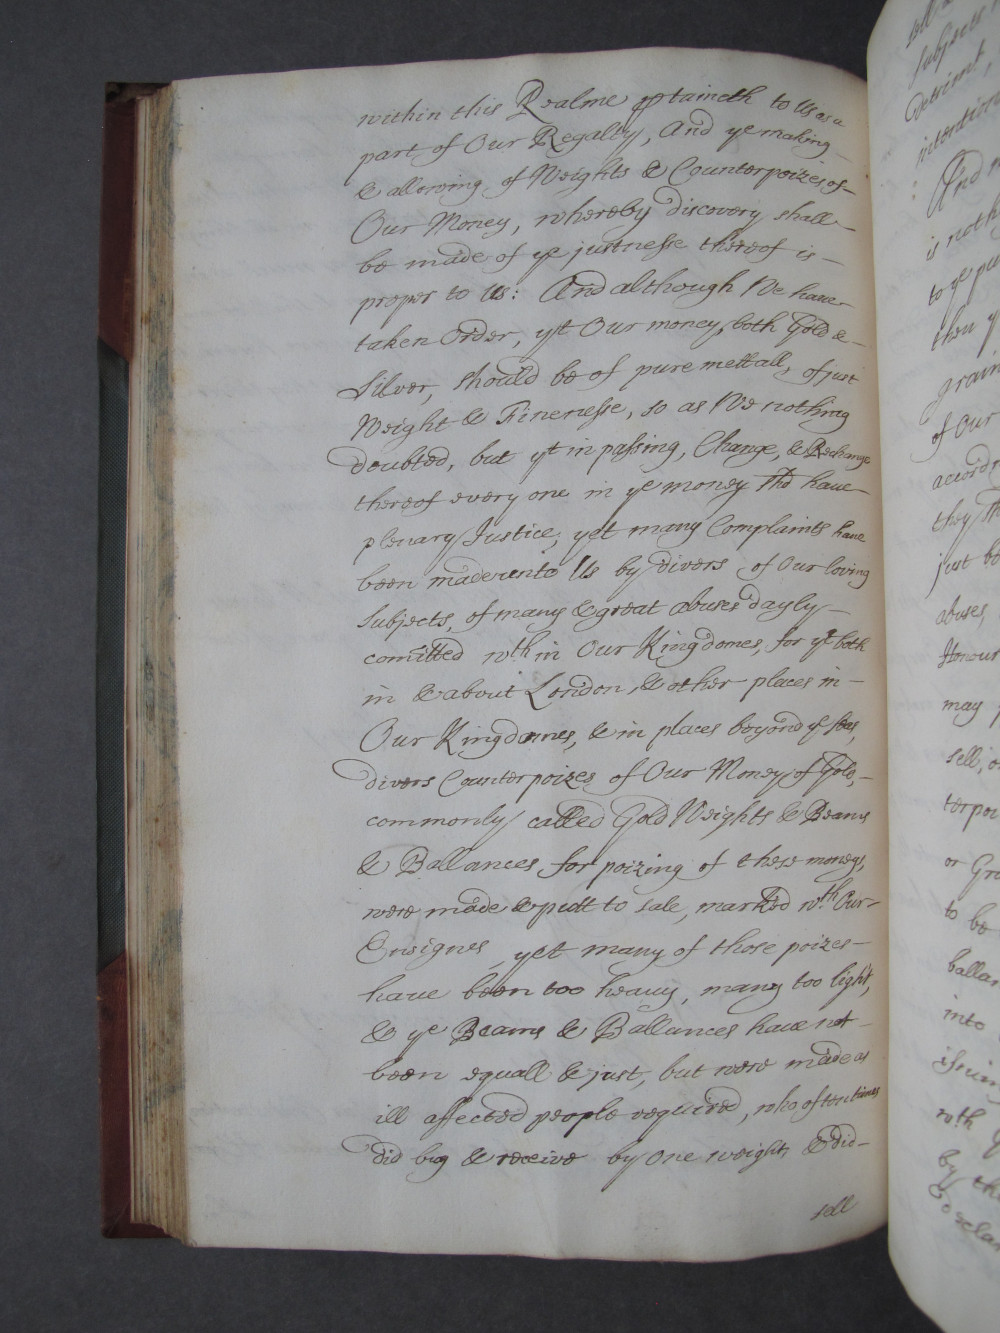 within this Realme ptaineth to Us as a
part of Our Regalty, And ye making
& allowing of Weights & Counterpoizes of
Our Money, whereby discovery shall
be made of ye justnesse thereof is
proper to Us: And although We have
taken Order, yt Our money, both Gold &
Silver, should be of pure mettall, of just
Weight & Finenesse, so as We nothing
doubted, but yt in passing, Change, & Rechange
thereof every one in ye money shd have
plenary Justice; yet many Complaints have
been made unto Us by divers of Our loving
Subjects, of many & great abuses dayly
comitted wth in Our Kingdomes, for yt both
in & about London, & other places in
Our Kingdomes, & in places beyond ye seas,
divers Counterpoizes of Our Money of Gold,
commonly called Gold Weights & Beams
& Ballances for poizing of these moneys,
were made & putt to sale, marked wth Our
Ensignes, yet many of those poizes
have been too heavy, many too light,
& ye Beams & Ballances have not
been equall & just, but were made as
ill affected people required, who oftentimes
did buy & receive by one weight, & did
sell
subjects
detrimt,
intention
And
is noth
to ye pu
then y
grain
of Our
accord
they sh
just be
abuses,
Honour
may
sell, o
terpoi
or Gra
to be
ballan
into
issuing
wth
by th